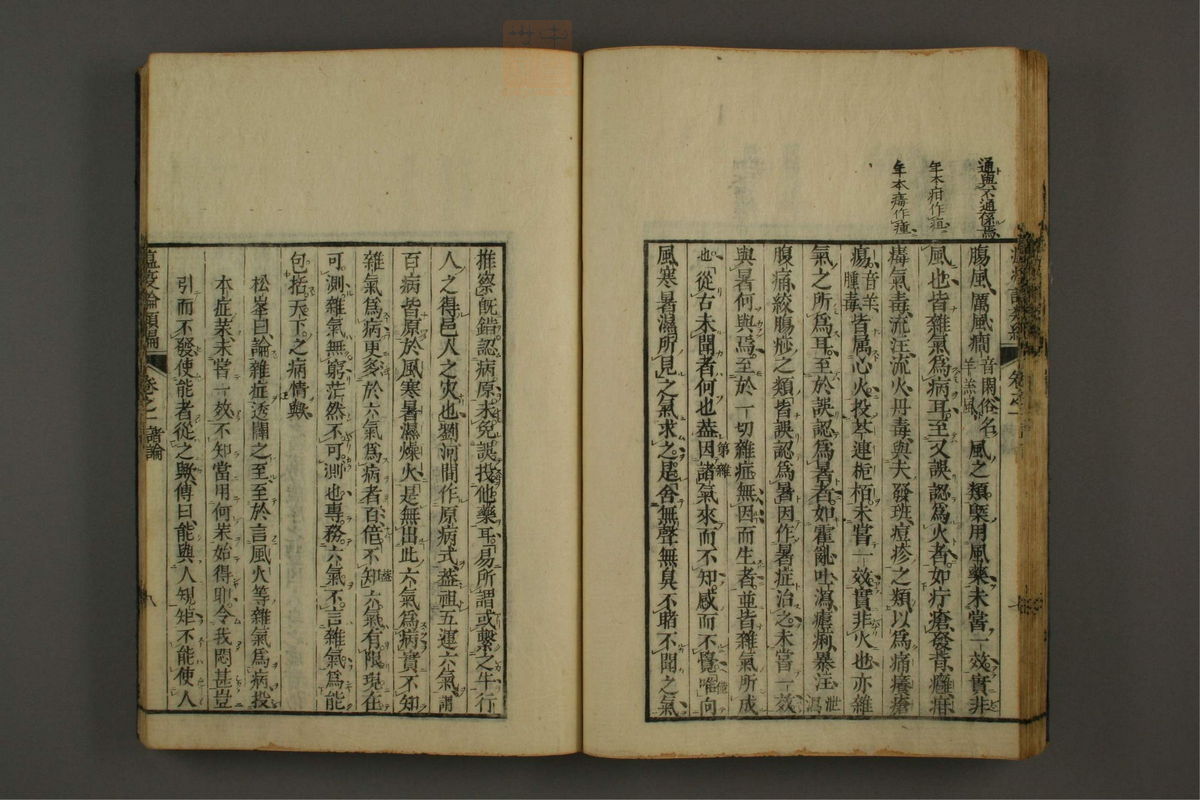 通與不通係焉
年本疳作疽
年本癆作瘇
腸風厲風癎音閑俗名羊羔風風之類槩用風藥未嘗一效實非
風也皆雜氣爲病耳至又誤認爲火者如疔瘡發背癰疽
氣毒流注流火丹毒與夫發斑痘疹之類以爲痛癢瘡
瘍音羊腫毒皆属心火投芩連梔栢未嘗一效實非火也亦雜
氣之所爲耳至於誤認爲暑者如霍亂吐瀉瘧痢暴注泄瀉
腹痛絞腸痧之類皆誤認爲暑因作暑症治之未嘗一效
與暑何與焉至於一切雜症無因而生者並皆雜氣所成
也從古未聞者何也葢因諸氣來而不知感而不覺惟向
風寒暑濕所見之氣求之是舍無聲無臭不睹不聞之氣
推察旣錯認病原未免誤投他藥耳易所謂或繫之牛行
人之得邑人之灾也劉河間作原病式葢祖五運六氣謂
百病皆原於風寒暑濕燥火是無出此六氣爲病實不知
雜氣爲病更多於六氣爲病者百倍不知六氣有限現在
可測雜氣無窮茫然不可測也專務六氣不言雜氣爲能
包括天下之病情歟
松峯曰論雜症透闢之至至於言風火等雜氣爲病投
本症藥未嘗一效不知當用何藥始得耶令我悶甚豈
引而不發使能者從之歟傳曰能與人規矩不能使人
瘟疫論類編
卷之一
諸論
八